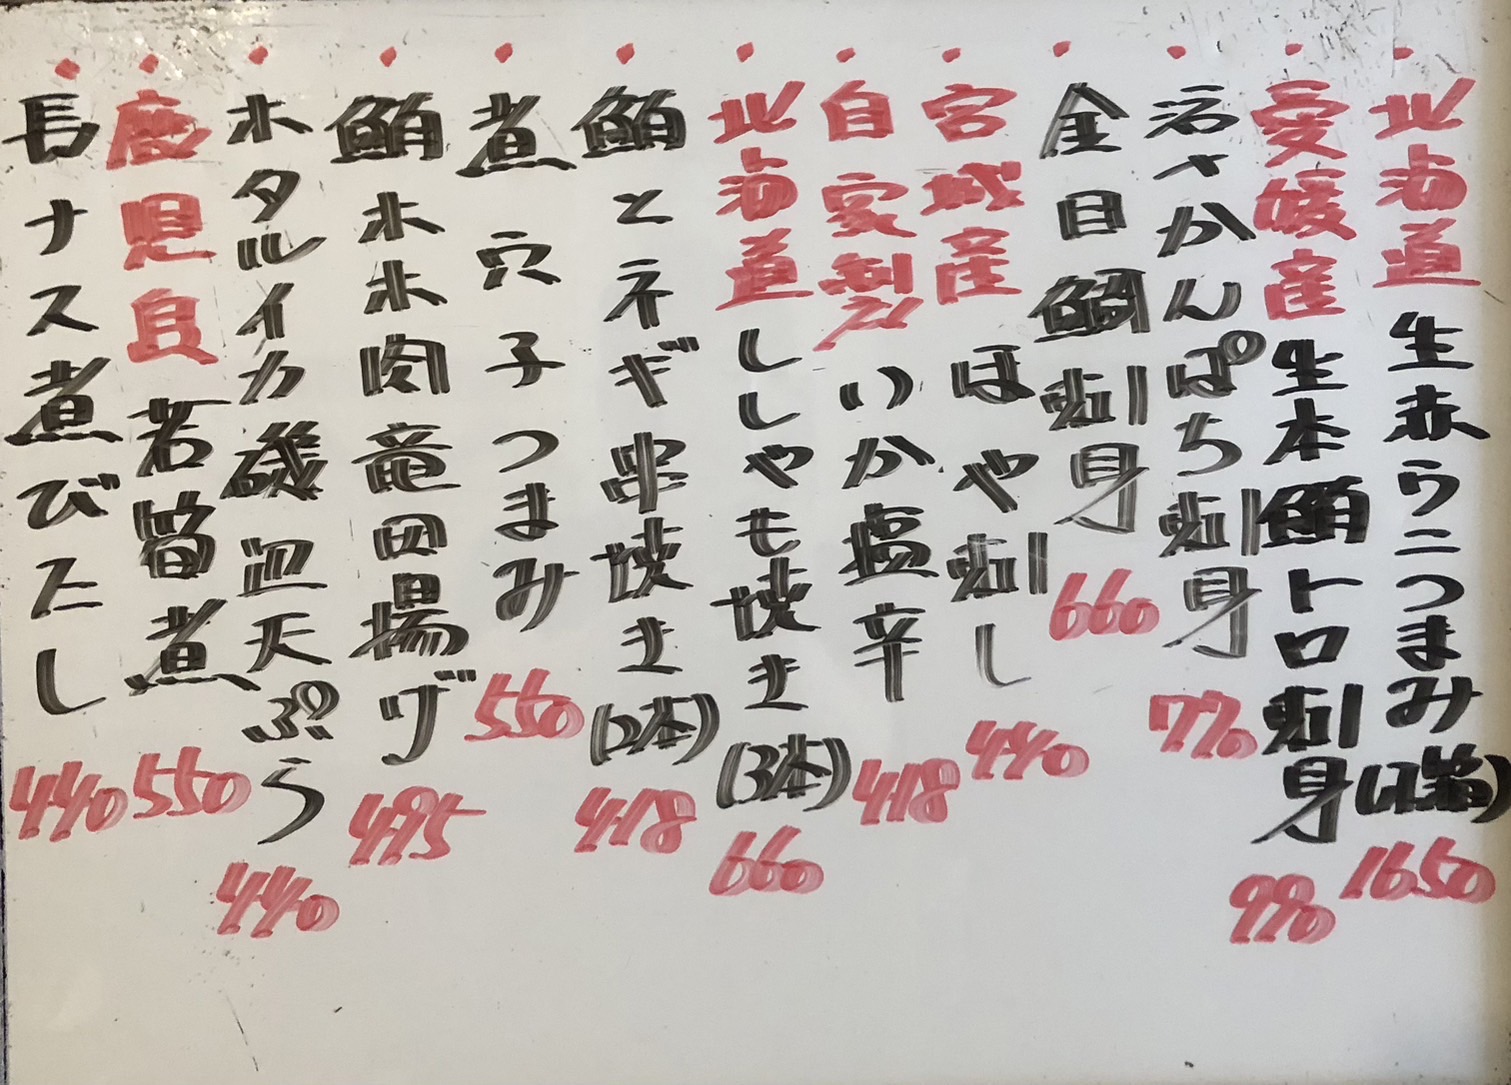 北海道生赤ウニつまみ(1箱) 1650
愛媛産生本鮪トロ刺身 990
活さかんぱち刺身 770
金目鯛刺身 660
宮城産ほや刺し 440
自家製いか塩辛 418
北海道ししゃも焼き(3本) 660
鮪とネギ串焼き(2本) 418
煮穴子つまみ 550
鮪ホホ肉竜田揚げ 495
ホタルイカ磯辺天ぷら 440
鹿児島若筍煮 550
長ナス煮びたし 440